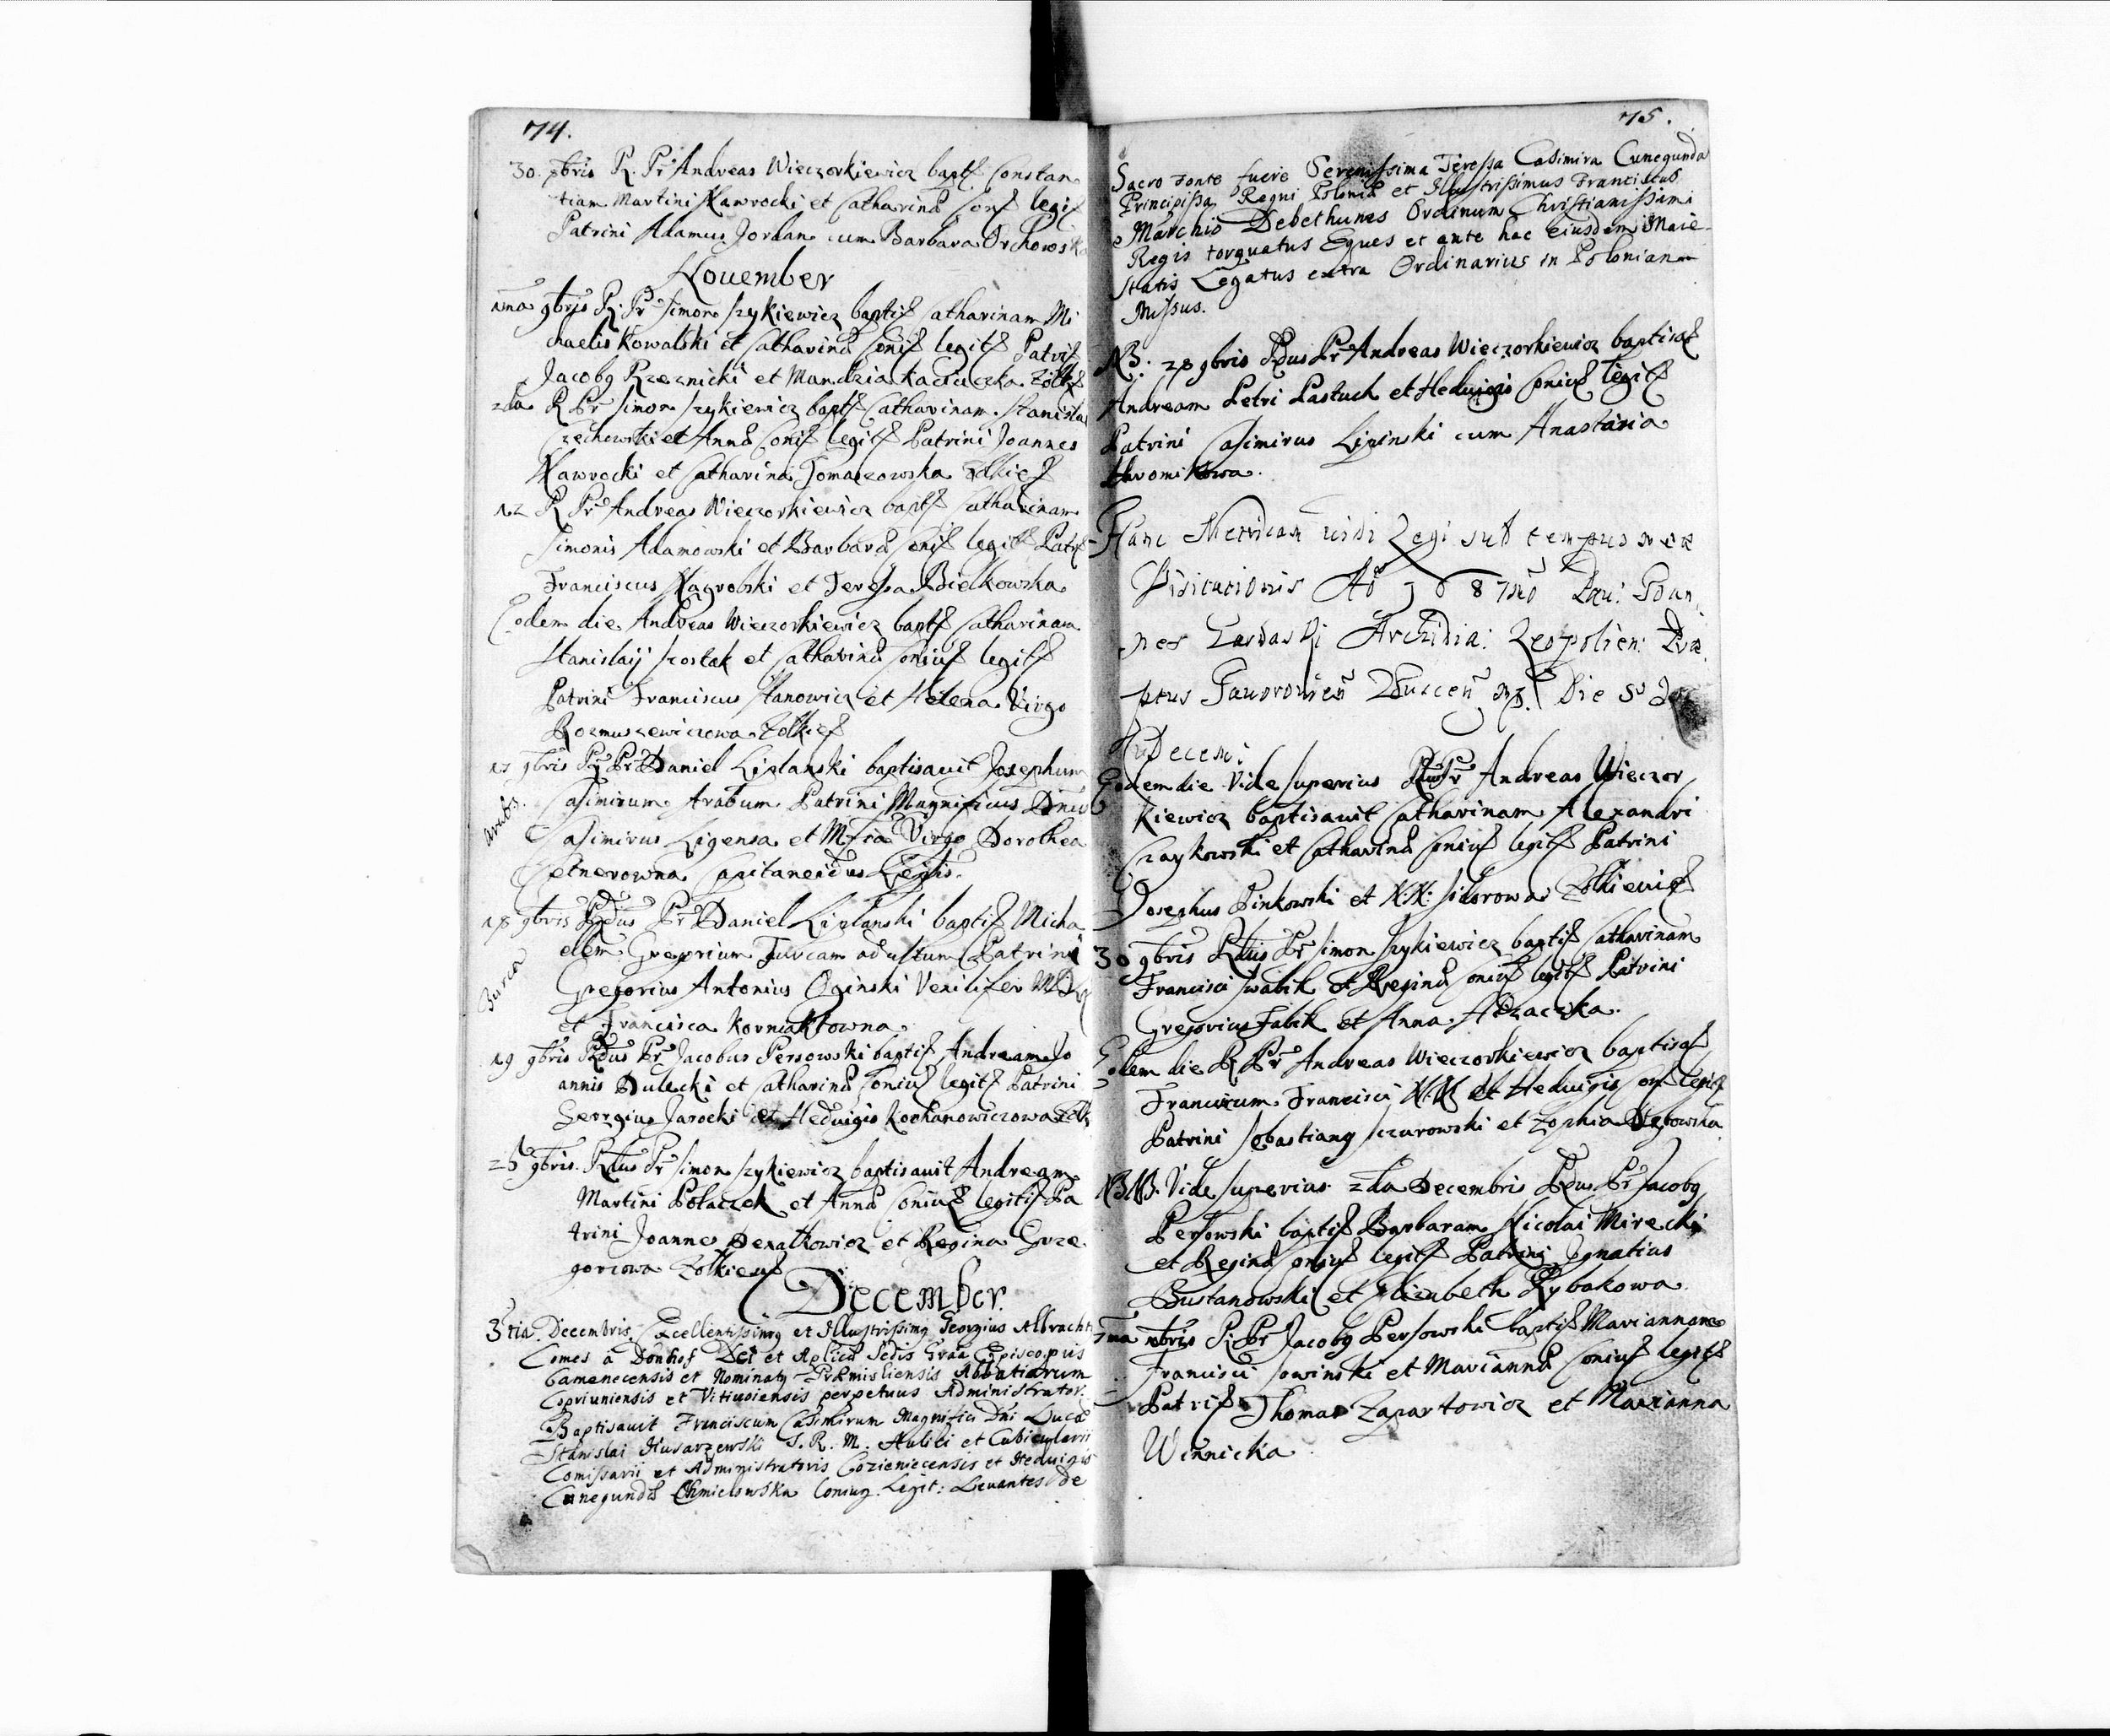 74.
30. 8bris R. Pr Andreas Wieczorkiewicz bapt Constan
tiam Martini Nawrocki et Catharina Conj legit
Patrini Adamus Jordan cum Barbara Orchowska
Nouember
1ma 9bris R. Pr Simon Szykiewicz baptis Catharinam Mi
chaelis Kowalski et Catharina Coniu legit Patri
Jacobg Rzeznicki et Mandzia Zolk
2da R Pr Simon Szykiewicz bapt Catharinam Stanisla
Czechowski et Anna Coni legit Patrini Joannes
Nawrocki et Catharina Tomaszowska Zolkie
12 R Pr Andreas Wieczorkiewicz bapt Catharinam
Simonis Adamowski et Barbara Coni legit Patri
Franciscus Nagrobski et Teressa Bielkowska
Eodem die Andreas Wieczorkiewicz bapt Catharinam
Stanislaij Szostak et Catharina Coniu legit
Patrini Franciscus Stanowicz et Helena Virgo
Rozmuszewiczowa Zolkie
17 9bris R Pr Daniel Liplanski baptisauit Josephum
Casimirum Arabum Patrini Magnificus Dnus
Arabs.
Casimirus Ligensa et Mfca Virgo Dorothea
Cetnerowna Capitaneidus
18 9bris Rdus Pr Daniel Liplanski baptis Micha
elem Gregorium Turcam adultum Patrini
Gregorius Antonius Oginski Vexilifer
et Francisca Korniaktowna.
19 9bris Rdus Pr Jacobus Persowski baptis Andream Jo
annis Dulecki et Catharina Coniu legit Patrini
Georgius Jarocki et Heduigis Kochanowiczowa Zolk
25 9bris. Rdus Pr Simon Szykiewicz baptisauit Andream
Martini Polaczek et Anna Coniu legiti Pa
trini Joannes et Regina Grze
gorzowa Zolkieu
December.
3tia Decembris Excellentissimg et Illustrissimg Georgius Albracht
Comes à Donhof Dei et Aplica Sedis Graa Episcopus
Camenecensis et Nominatg Præmisliensis Abbatiarum
et perpetuus Administrator.
Baptisauit Franciscum Casimirum Magnifici Dni Luca
Stanislai Husarzewski S. R. M. Aulici et Cubicularii
Comissarii et Administratoris Cozieniecensis et Heduigis
Cunegunda Chmielowska Coniug. Legit: Leuantes de
75.
Sacro Fonte fuere Serenissima Teressa Casimira Cunegunda
Principissa Regni Polonia et Illustrissimus Franciscus
Marchio Debethunes Ordinum Christianissimi
Regis torquatus Eques et ante hac eiusdem Maie-
statis Legatus extra Ordinarius in Poloniam
Missus.
NB. 28 9bris Rdus Pr Andreas Wieczorkiewicz baptisa
Andream Petri Pastuch et Heduigis Coniu legit
Patrini Casimirus Lipinski cum Anastasia
Hanc Metricam uidi Legi sub tempus meæ
Visitationis Ao 1687mo Joan
nes Archidia: Leopolien: Præ
Die
Decem:
Eodem die Vide superius Rdus Pr Andreas Wieczor
kiewicz baptisauit Catharinam Alexandri
Czaykowski et Catharina Coniu legit Patrini
Josephus Pinkowski et N.N. Sidorowa Zolkieuie
30 9bris Rdus Pr Simon Szykiewicz baptis Catharinam
Francisci Swabik et Regina Coniu legit Patrini
Gregorius Fabik et Anna
Eodem die R Pr Andreas Wieczorkiewicz baptisa
Franciscum Francisci N.N. et Heduigis Con legit
Patrini Sebastiang Szurowski et Zophia
NB NB. Vide superius 2da Decembris Rdus Pr Jacobg
Persowski baptis Barbaram Nicolai Mirecki
et Regina Coniu legit Patrini Ignatius
Bustanowski et Elizabeth Rybakowa
7ma Xbris R. Pr Jacobg Persowski baptis Mariannam
Francisci Sowinski et Marianna Coniu legit
Patri Thomas Zapartowicz et Marianna
Winnicka